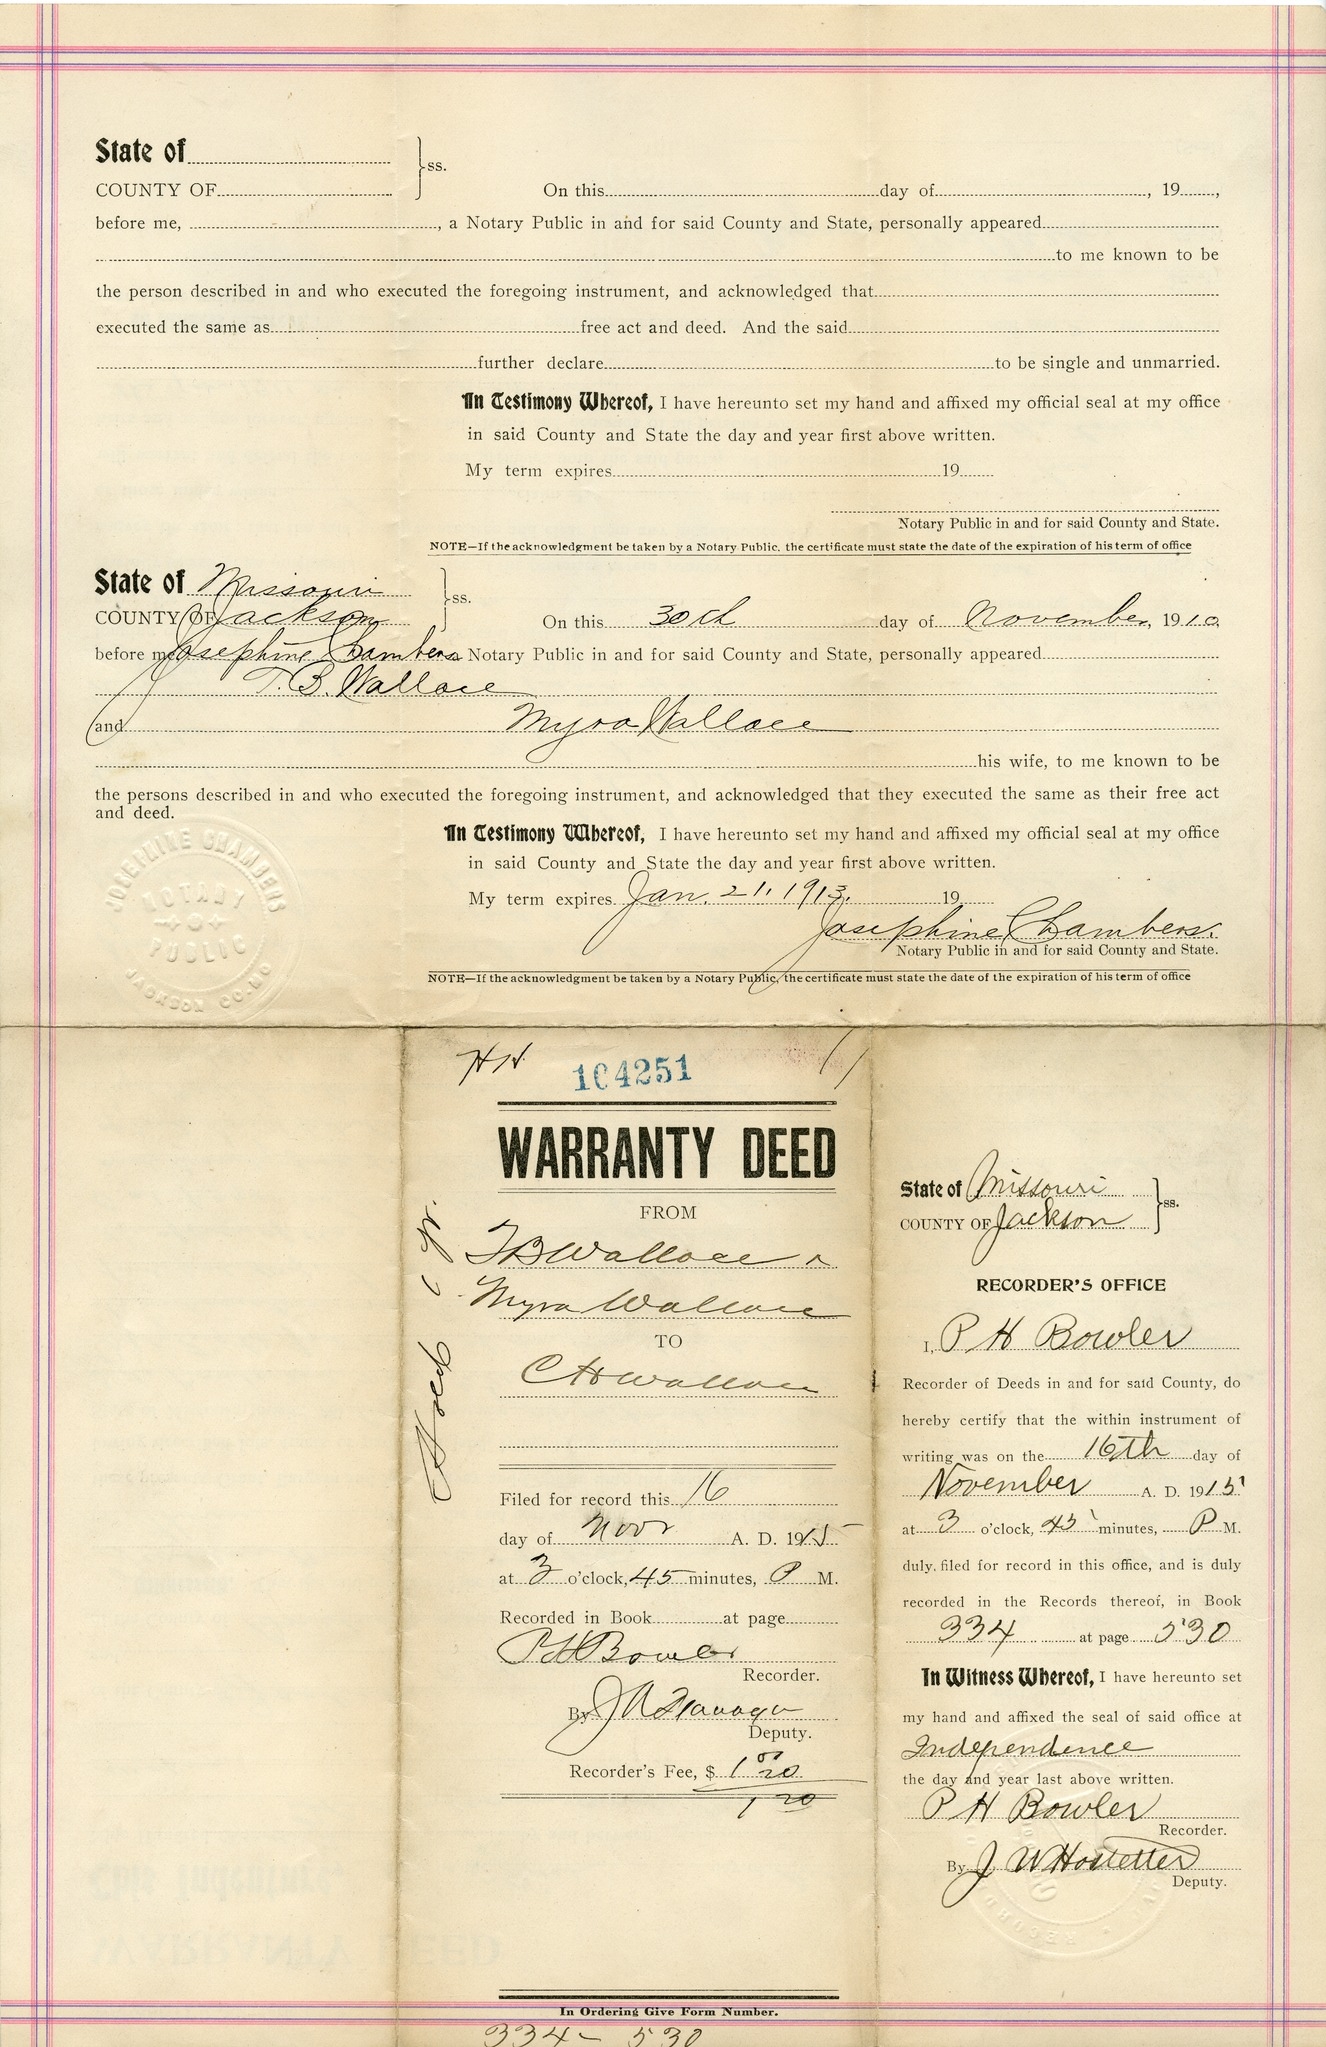 State of
COUNTY OF
ss.
On this day of , 19 ,
before me, , a Notary Public in and for said County and State, personally appeared
to me known to be
the person described in and who executed the foregoing instrument, and acknowledged that
executed the same as free act and deed. And the said
further declare to be single and unmarried.
In Testimony Whereof, I have hereunto set my hand and affixed my official seal at my office
in said County and State the day and year first above written.
My term expires 19
Notary Public in and for said County and State.
NOTE—If the acknowledgment be taken by a Notary Public, the certificate must state the date of the expiration of his term of office
State of Missouri
COUNTY OF Jackson
ss.
On this 30th day of November, 1910
before me Josephine Chambers Notary Public in and for said County and State, personally appeared
T. B. Wallace
and Myra Wallace
his wife, to me known to be
the persons described in and who executed the foregoing instrument, and acknowledged that they executed the same as their free act
and deed.
In Testimony Whereof, I have hereunto set my hand and affixed my official seal at my office
in said County and State the day and year first above written.
My term expires Jan. 21, 1913. 19
Josephine Chambers.
Notary Public in and for said County and State.
NOTE—If the acknowledgment be taken by a Notary Public, the certificate must state the date of the expiration of his term of office
JOSEPHINE CHAMBERS
NOTARY
PUBLIC
JACKSON CO. MO
104251
WARRANTY DEED
FROM
T B Wallace
Myra Wallace
TO
C H Wallace
Filed for record this 16
day of Novr A. D. 1915
at 3 o'clock, 45 minutes, P M.
Recorded in Book at page
P H Bowler
Recorder.
By
Deputy.
Recorder's Fee, $ 1 20
1 20
State of Missouri
COUNTY OF Jackson
ss.
RECORDER'S OFFICE
I, P H Bowler
Recorder of Deeds in and for said County, do
hereby certify that the within instrument of
writing was on the 16th day of
November A. D. 1915
at 3 o'clock, 45 minutes, P M.
duly filed for record in this office, and is duly
recorded in the Records thereof, in Book
334 at page 530
In Witness Whereof, I have hereunto set
my hand and affixed the seal of said office at
Independence
the day and year last above written.
P H Bowler
Recorder.
By J W Hostetter
Deputy.
In Ordering Give Form Number.
334 - 530